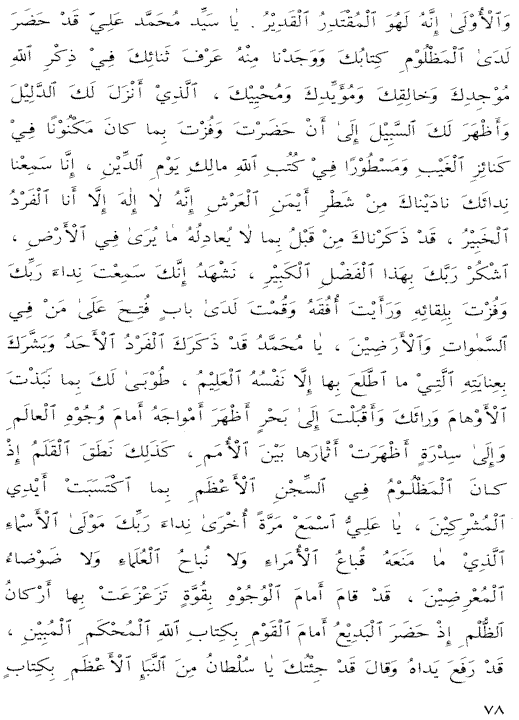 وَٱلْأُوْلَىٰ إِنَّهُ لَهُوَ ٱلْمُقْتَدِرُ ٱلْقَدِيْرُ . يَا سَيِّد مُحَمَّد عَلِيّ قَدْ حَضَرَ
لَدَىٰ ٱلْمَظْلُوْمِ كِتَابُكَ وَوَجَدْنَا مِنْهُ عَرْفَ ثَنَائِكَ فِيْ ذِكْرِ ٱللهِ
مُوْجِدِكَ وَخَالِقِكَ وَمُؤَيِّدِكَ وَمُحْيِيْكَ ، ٱلَّذِيْ أَنْزَلَ لَكَ ٱلدَّلِيْلَ
وَأَظْهَرَ لَكَ ٱلسَّبِيْلَ إِلَىٰ أَنْ حَضَرْتَ وَفُزْتَ بِمَا كَانَ مَكْنُوْنًا فِيْ
كَنَائِزِ ٱلْغَيْبِ وَمَسْطُوْرًا فِيْ كُتُبِ ٱللهِ مَالِكِ يَوْمِ ٱلدِّيْنِ ، إِنَّا سَمِعْنَا
نِدَائَكَ نَادَيْنَاكَ مِنْ شَطْرِ أَيْمَنِ ٱلْعَرْشِ إِنَّهُ لَا إِلٰهَ إِلَّا أَنَا ٱلْفَرْدُ
ٱلْخَبِيْرُ ، قَدْ ذَكَرْنَاكَ مِنْ قَبْلُ بِمَا لَا يُعَادِلُهُ مَا يُرَىٰ فِي ٱلْأَرْضِ ،
ٱشْكُرْ رَبَّكَ بِهَذَا ٱلْفَضْلِ ٱلْكَبِيْرِ ، نَشْهَدُ إِنَّكَ سَمِعْتَ نِدَاءَ رَبِّكَ
وَفُزْتَ بِلِقَائِهِ وَرَأَيْتَ أُفُقَهُ وَقُمْتَ لَدَىٰ بَابٍ فُتِحَ عَلَىٰ مَنْ فِي
ٱلسَّمٰوَاتِ وَٱلْأَرَضِيْنَ ، يَا مُحَمَّدُ قَدْ ذَكَرَكَ ٱلْفَرْدُ ٱلْأَحَدُ وَبَشَّرَكَ
بِعِنَايَتِهِ ٱلَّتِيْ مَا ٱطَّلَعَ بِهَا إِلَّا نَفْسُهُ ٱلْعَلِيْمُ ، طُوْبَىٰ لَكَ بِمَا نَبَذْتَ
ٱلْأَوْهَامَ وَرَائَكَ وَأَقْبَلْتَ إِلَىٰ بَحْرٍ أَظْهَرَ أَمْوَاجَهُ أَمَامَ وُجُوْهِ ٱلْعَالَمِ
وَإِلَىٰ سِدْرَةٍ أَظْهَرَتْ أَثْمَارَهَا بَيْنَ ٱلْأُمَمِ ، كَذَلِكَ نَطَقَ ٱلْقَلَمُ إِذْ
كَانَ ٱلْمَظْلُوْمُ فِي ٱلسِّجْنِ ٱلْأَعْظَمِ بِمَا ٱكْتَسَبَتْ أَيْدِي
ٱلْمُشْرِكِيْنَ ، يَا عَلِيُّ ٱسْمَعْ مَرَّةً أُخْرَىٰ نِدَاءَ رَبِّكَ مَوْلَىٰ ٱلْأَسْمَاءِ
ٱلَّذِيْ مَا مَنَعَهُ قُبَاعُ ٱلْأُمَرَاءِ وَلَا نُبَاحُ ٱلْعُلَمَاءِ وَلَا ضَوْضَاءُ
ٱلْمُعْرِضِيْنَ ، قَدْ قَامَ أَمَامَ ٱلْوُجُوْهِ بِقُوَّةٍ تَزَعْزَعَتْ بِهَا أَرْكَانُ
ٱلظُّلْمِ إِذْ حَضَرَ ٱلْبَدِيْعُ أَمَامَ ٱلْقَوْمِ بِكِتَابِ ٱللهِ ٱلْمُحْكَمِ ٱلْمُبِيْنِ ،
قَدْ رَفَعَ يَدَاهُ وَقَالَ قَدْ جِئْتُكَ يَا سُلْطَانُ مِنَ ٱلنَّبَإِ ٱلْأَعْظَمِ بِكِتَابٍ
٧٨